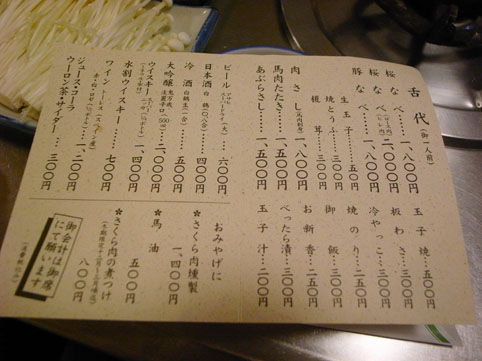 舌代 (御一人前)
桜なべ……一、八〇〇円
桜なべ(ロース肉 ヒレ肉)……二、〇〇〇円
豚なべ……一、八〇〇円
生玉子……五〇円
焼どうふ……三〇〇円
榎茸……三〇〇円
肉さし(馬肉刺身)……一、八〇〇円
馬肉たたき……一、五〇〇円
あぶらさし……一、五〇〇円
玉子焼……五〇〇円
板わさ……三〇〇円
冷やっこ……三〇〇円
焼のり……二〇〇円
御飯……三〇〇円
お新香……二〇〇円
べったら漬……三〇〇円
玉子汁……二〇〇円
ビール……六〇〇円
日本酒 白鶴(〇・八合)……四〇〇円
冷酒 白鶴生(一合)……五〇〇円
大吟醸
ウイスキー
水割ウイスキー……七〇〇円
ワイン
ジュース・コーラ
ウーロン茶・サイダー……三〇〇円
おみやげに
*さくら肉燻製 一、四〇〇円
馬油 五〇〇円
*さくら肉の煮つけ 八〇〇円
御会計は御席にて願います
(消費税込み)